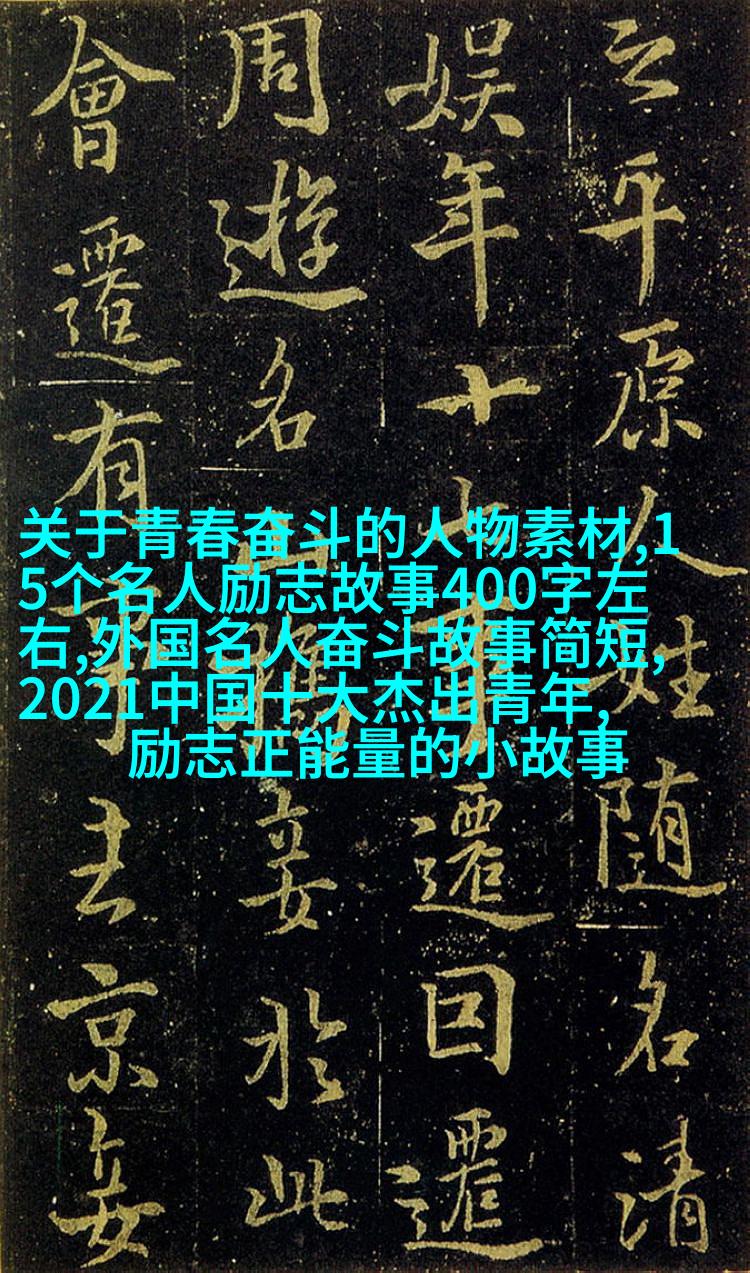 之平原人姓随名清
娱年十七遷回遷
周遊名山妾於此
會遷有事去京妾
关于青春奋斗的人物素材,1
5个名人励志故事400字左
右,外国名人奋斗故事简短,
2021中国十大杰出青年,
励志正能量的小故事